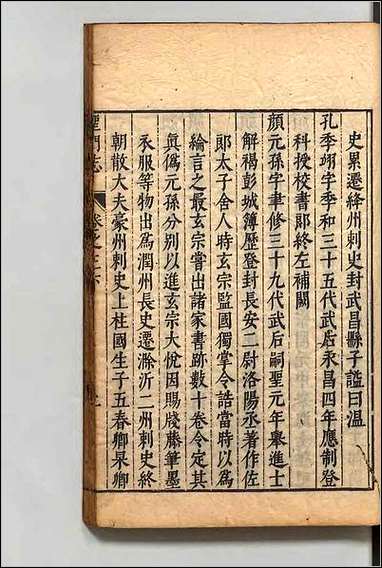 史累遷絳州刺史封武昌縣子謚曰溫
孔季翊字季和三十五代武后永昌四年應制登
科授校書郎終左補闕
顏元孫字聿修三十九代武后嗣聖元年舉進士
解褐彭城簿歷登封長安二尉洛陽丞著作佐
郎太子舍人時玄宗監國獨掌令誥當時以為
綸言之最玄宗嘗出諸家書跡數十卷令定其
眞偽元孫分別以進玄宗大悅因賜牋藤筆墨
衣服等物出為潤州長史遷滁沂二州刺史終
朝散大夫豪州刺史上柱國生子五春卿杲卿
聖門志
卷之三